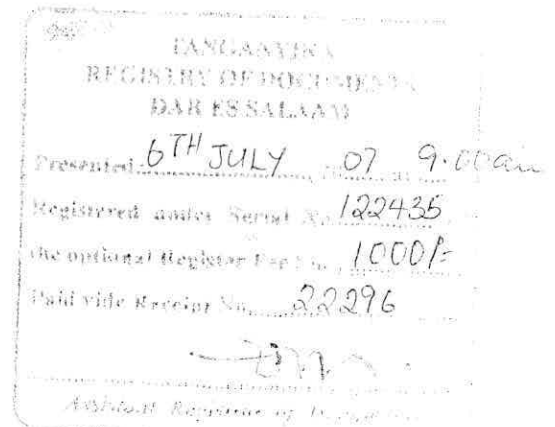 TANGANYIKA
REGISTRY OF DOCUMENTS
DAR ES SALAAM
Presented 6TH JULY 07 at 9.00am
Registered under Serial No. 122435
the optional Register Fee Shs. 1000/=
Paid vide Receipt No. 22296
Assistant Registrar of